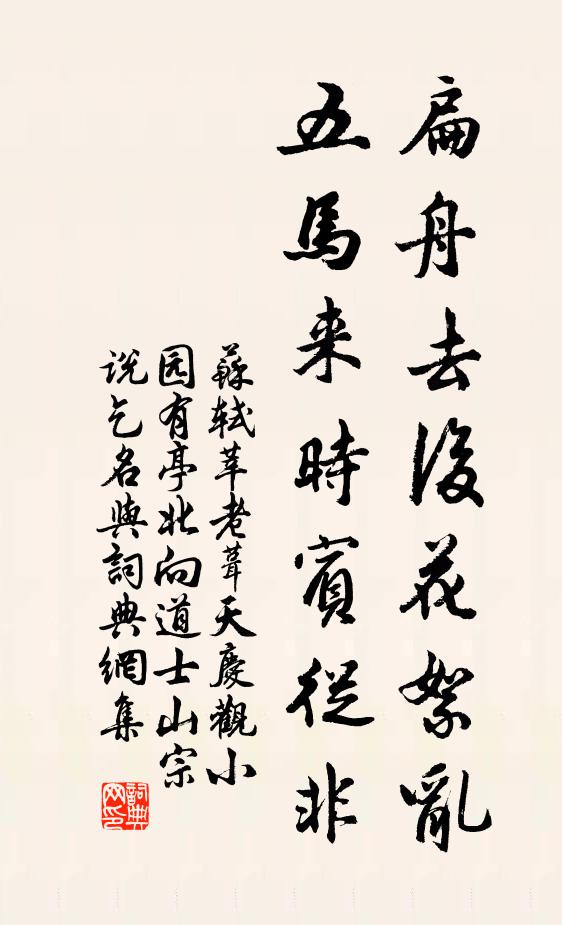 扁舟去後花絮亂
五馬来時賓從非
蘇軾莘老葺天慶觀小
园有亭北向道士山宗
说乞名與詞典網集
詞典
网印